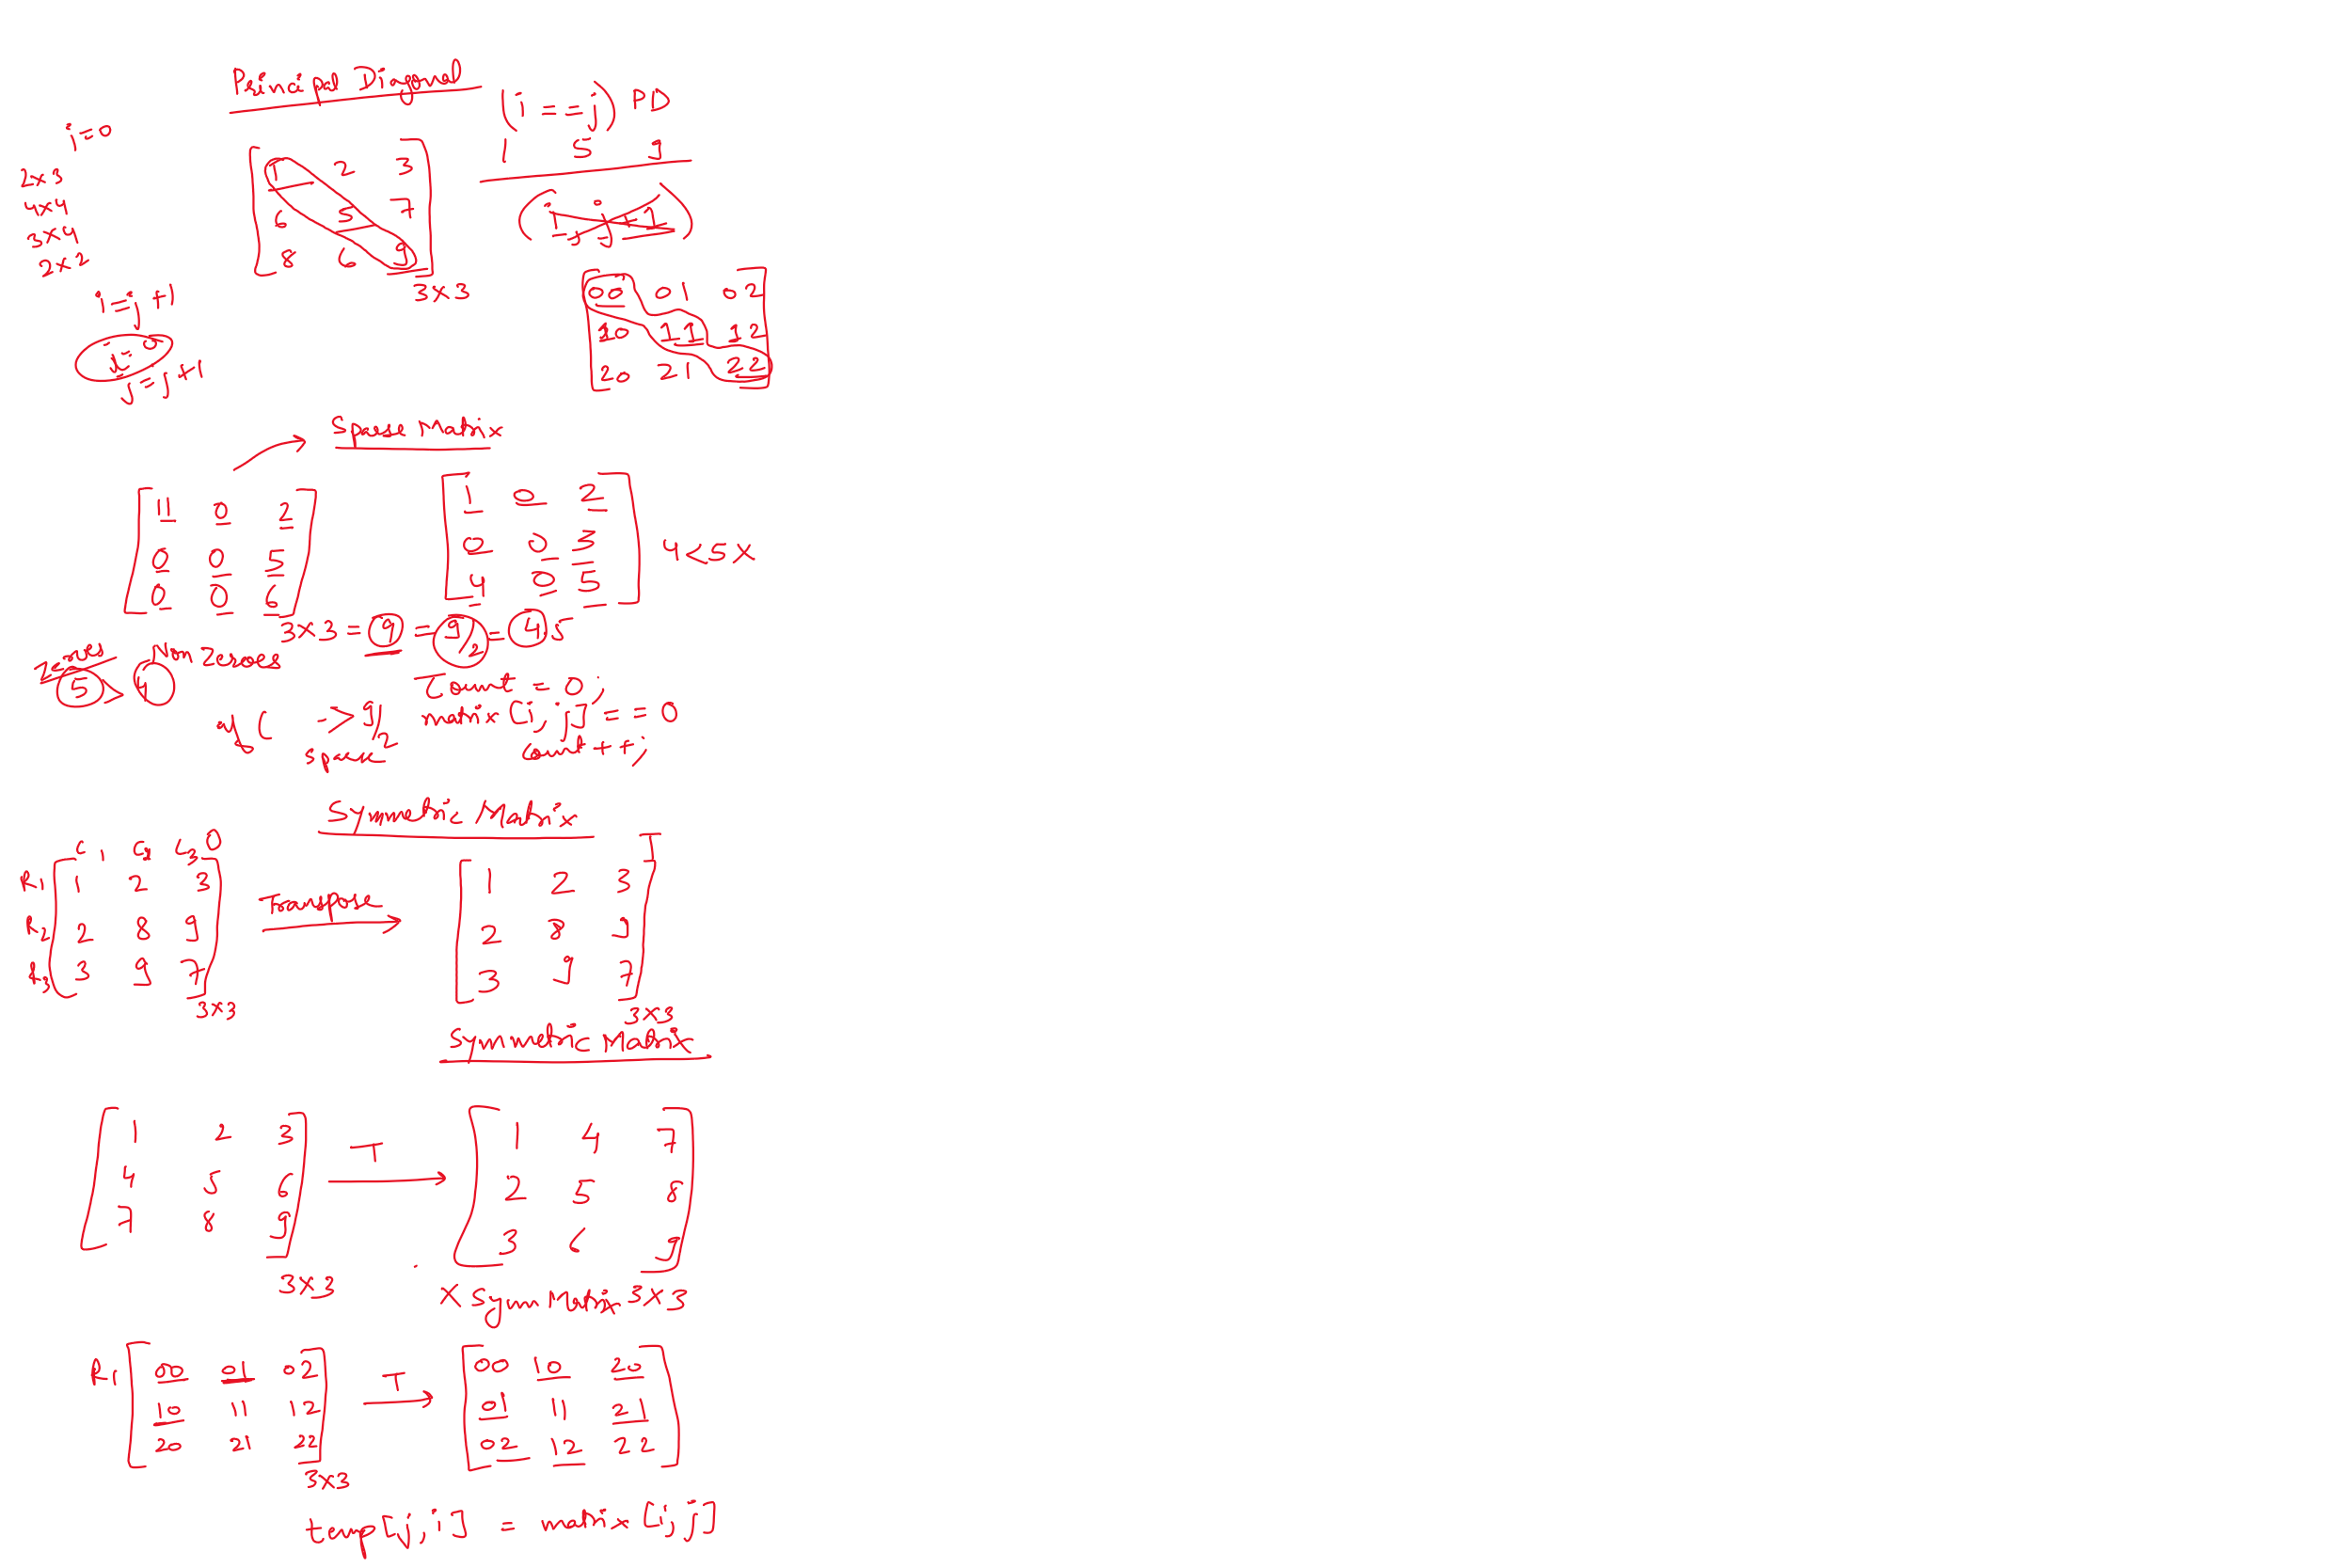 Principal Diagonal
(i==j) PD
1 5 9
i=0
2x3
4x4
3x4
2x2
1 2 3
6 5 7
8 6 9
3x3
i, j+1
i=j+1
j=j+1
00 01 02
10 11 12
20 21 22
Sparse Matrix
11 0 2
0 0 5
0 0 6
1 0 2
0 0 3
4 0 5
4<5 X
3x3 = 9 = 9/2 = 4.5
Zeroes Non Zeroes
5 > 4
Count = 0;
if ( -> 9/2 matrix [i,j] == 0
sparse count++;
Symmetric Matrix
C1 C2 C3
R1 1 2 3
R2 2 8 9
R3 3 9 7
3x3
Transpose
T
1 2 3
2 8 9
3 9 7
3x3
Symmetric Matrix
1 2 3
4 5 6
7 8 9
3x3
T
1 4 7
2 5 8
3 6 9
X Symm Matrix 3x3
R1 00 01 02
10 11 12
20 21 22
3x3
T
00 10 20
01 11 21
02 12 22
temp[j,i] = matrix [i,j]